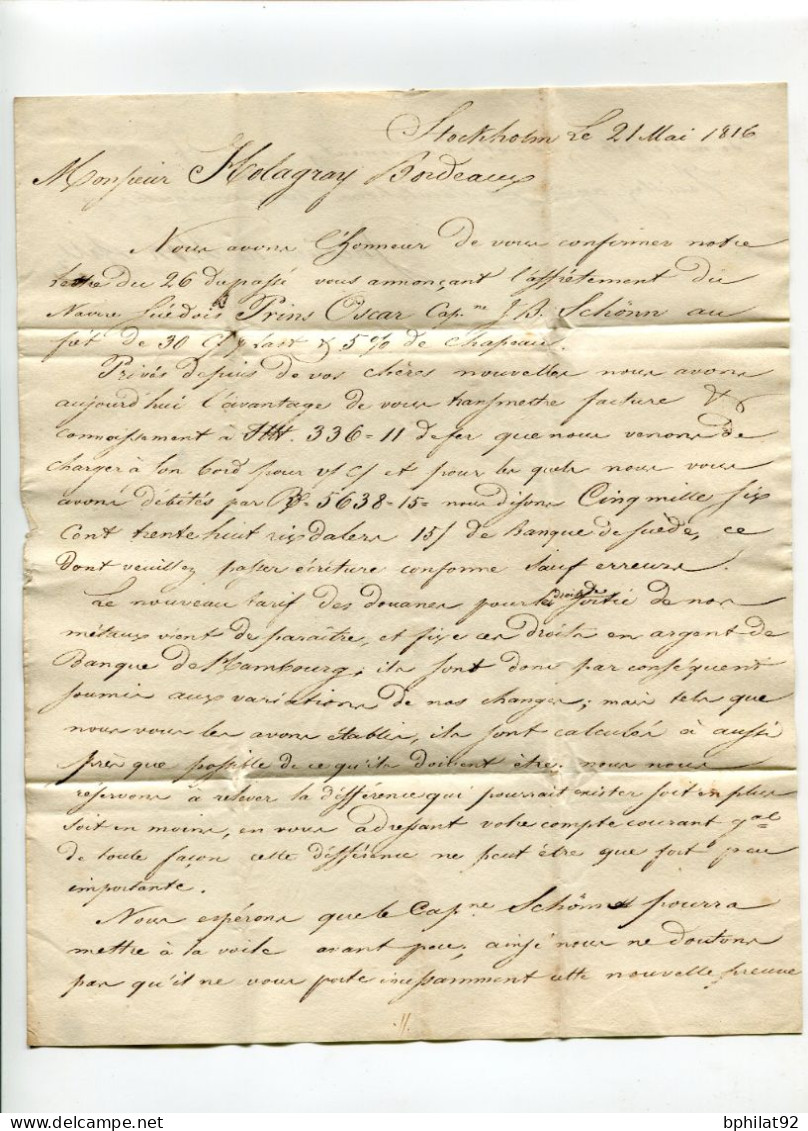 Stockholm Le 21 Mai 1816
Monsieur Holagray Bordeaux
Nous avons l'honneur de vous confirmer notre
Lettre du 26 du passé vous annonçant l'affrétement du
Navire Suédois Prins Oscar Cap.ne J. B. Schönn au
frêt de 30 last & 5% de chapeau.
Privés depuis de vos chères nouvelles nous avons
aujourd'hui l'avantage de vous transmettre facture &
connaissement à 336=11 de fer que nous venons de
charger à son bord pour v/ c/ et pour les quels nous vous
avons débités par 5638-15= nous disons Cinq mille six
Cent trente huit rixdalers 15/ de Banque de suède, ce
dont veuillez passer écriture conforme sauf erreurs.
Le nouveau tarif des douanes pour les droits de sortie de nos
métaux vient de paraître, et fixe ces droits en argent de
Banque de Hambourg; ils sont donc par conséquent
soumis aux variations de nos changes; mais tels que
nous vous les avons établis, ils sont calculés à aussi
près que possible de ce qu'ils doivent être; nous nous
réservons à relever la différence qui pourrait exister soit en plus
soit en moins, en vous adressant votre compte courant g.al
de toute façon cette différence ne peut être que fort peu
importante.
Nous espérons que le Cap.ne Schönn pourra
mettre à la voile avant peu, ainsi nous ne doutons
pas qu'il ne vous porte incessamment cette nouvelle preuve
bphilat92